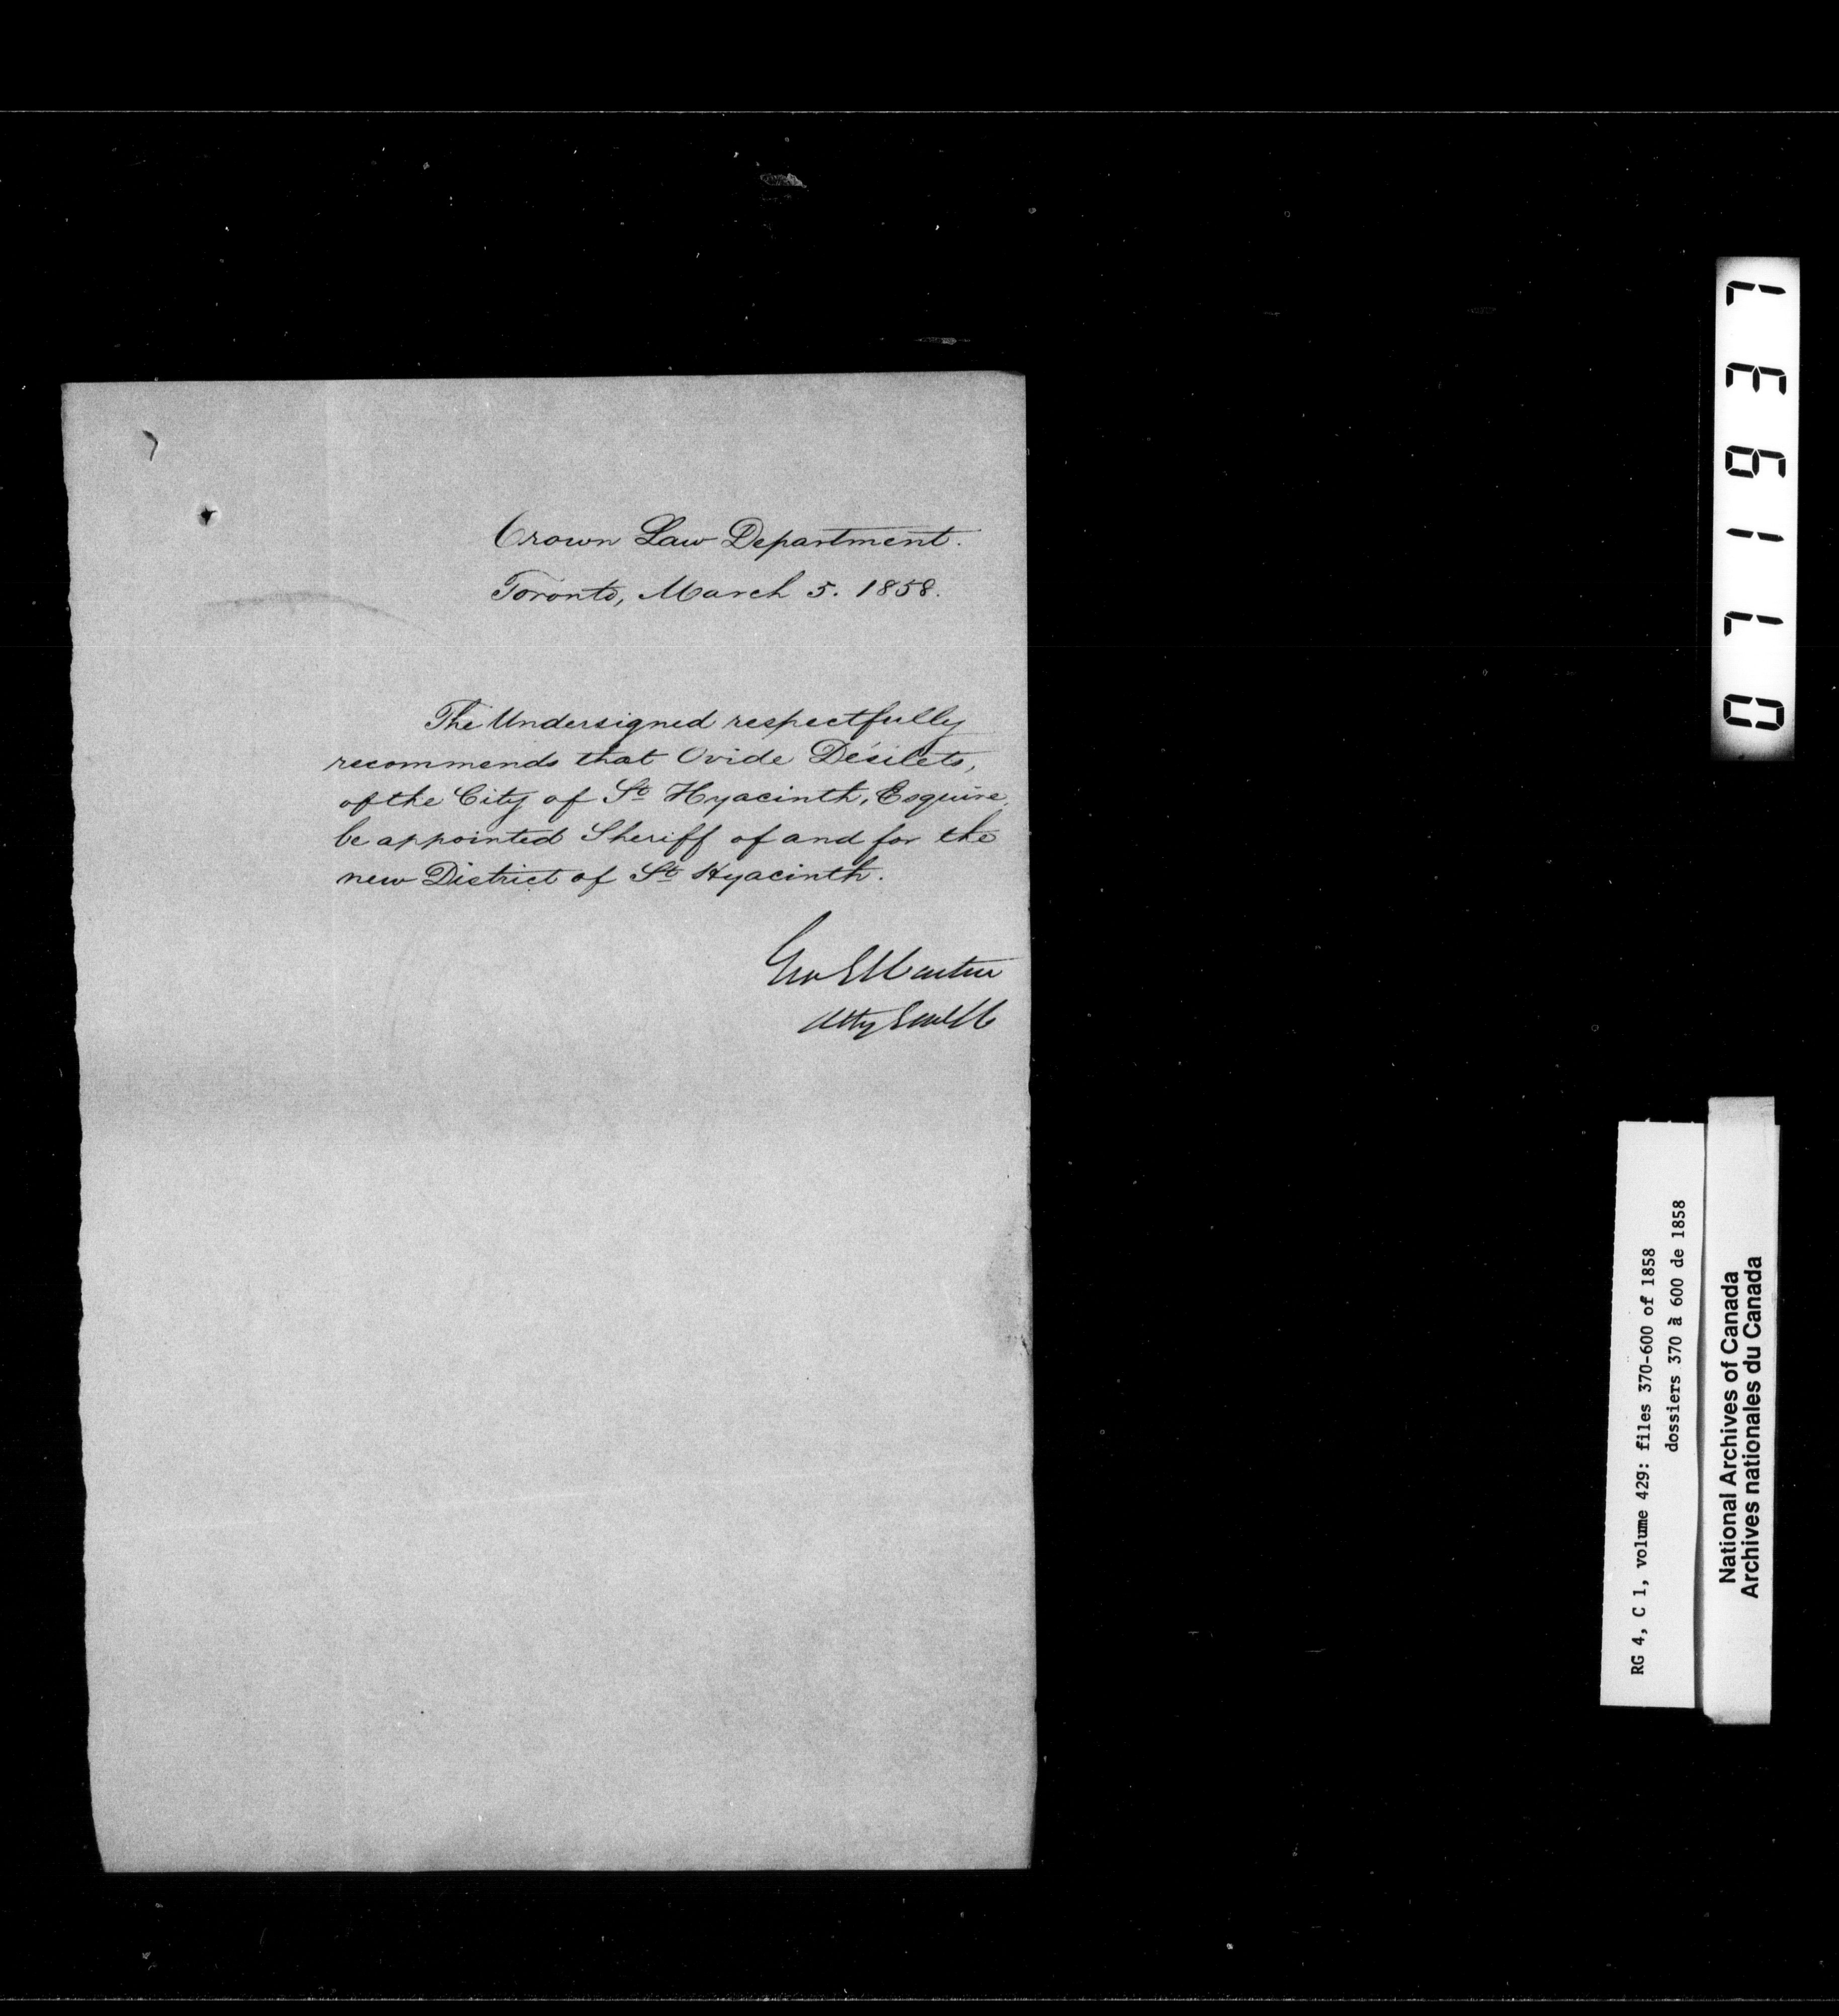 Crown Law Department.
Toronto, March 5. 1858.
The Undersigned respectfully
recommends that Ovide Désilets,
of the City of St Hyacinth, Esquire,
be appointed Sheriff of and for the
new District of St Hyacinth.
Geo E Cartier
Atty Genl LC
071637
RG 4, C 1, volume 429: files 370-600 of 1858
dossiers 370 à 600 de 1858
National Archives of Canada
Archives nationales du Canada